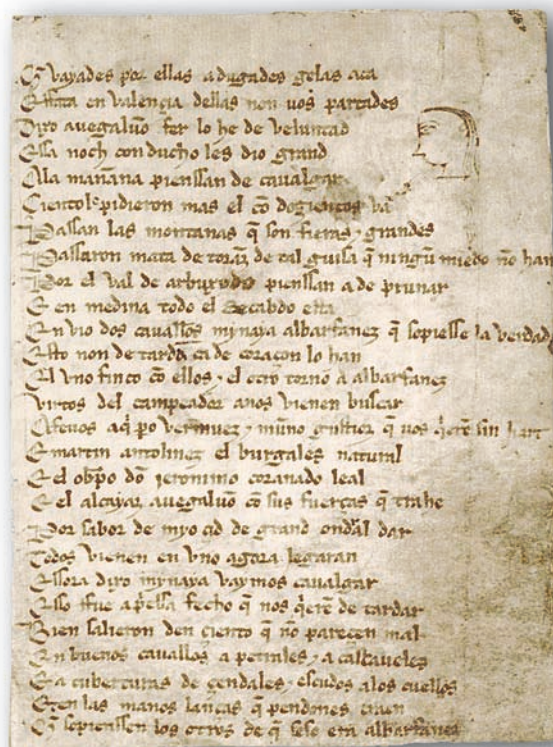 Q̃ vayades por ellas adugades gelas aca
E ffata en valençia dellas non uos partades
Dixo auegaluon fer lo he de veluntad
Essa noch conducho les dio grand
Ala mañana pienssan de caualgar
Çientol pidieron mas el cō dozientos va
Passan las montanas q̃ son fieras ⁊ grandes
Passaron mata de toranz de tal guisa q̃ ningũ miedo nõ han
Por el val de arbuxedo pienssan a de prunar
E en medina todo el Recabdo esta
Envio dos cauallos mynaya albarfanez q̃ sopiesse la verdad
Esto non detardã ca de coraçon lo han
El vno finco cõ ellos ⁊ el otro torno a albarfanez
Virtos del campeador anos vienen buscar
Afeuos aq̃ po vermuez ⁊ muño gustioz q̃ uos q̃eren sin hart
E martin antolinez el burgales natural
E el obpo dõ jeronimo coranado leal
E el alcayaz auegaluõ cõ sus fuerças q̃ trahe
Por sabor de myo çid de grand ondral dar
Todos vienen en vno agora legaran
Essora dixo mynaya vaymos caualgar
Esso ffue apriessa fecho q̃ nos q̃erẽ de tardar
Bien salieron den çiento q̃ nõ pareçen mal
En buenos cauallos a petrales ⁊ a cascaueles
E a cuberturas de çendales ⁊ escudos alos cuellos
E en las manos lanças q̃ pendones traen
Q̃ sopienssen los otros de q̃ seso era albarfanez